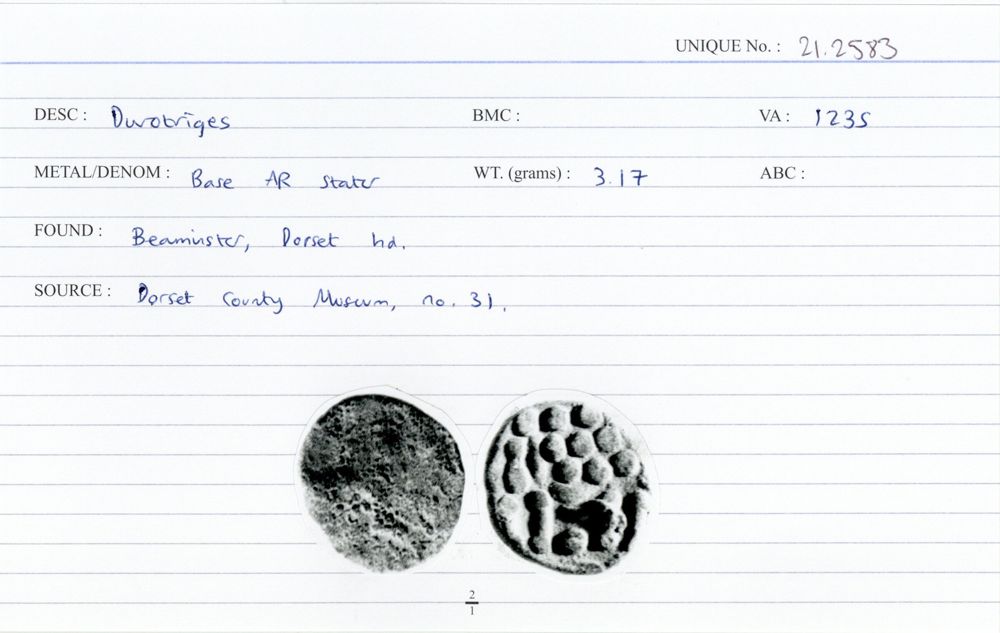 UNIQUE No. : 21.2583
DESC : Durotriges BMC : VA : 1235
METAL/DENOM : Base AR stater WT. (grams) : 3.17 ABC :
FOUND : Beaminster, Dorset hd.
SOURCE : Dorset County Museum, no. 31.
2
1